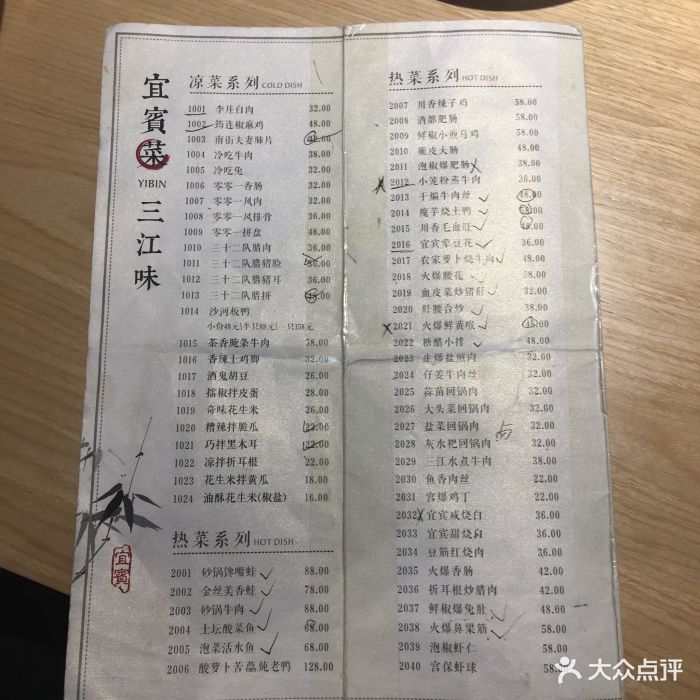 宜賓菜
YIBIN
三江味
凉菜系列 COLD DISH
1001 李庄白肉 32.00
1002 筠连椒麻鸡 48.00
1003 南街夫妻肺片 42.00
1004 冷吃牛肉 38.00
1005 冷吃兔 32.00
1006 零零一香肠 32.00
1007 零零一风肉 32.00
1008 零零一风排骨 36.00
1009 零零一拼盘 48.00
1010 三十二队腊肉 36.00
1011 三十二队腊猪脸 36.00
1012 三十二队腊猪耳 36.00
1013 三十二队腊拼 48.00
1014 沙河板鸭
小份48元|半只88元|一只158元
1015 茶香脆条牛肉 78.00
1016 香辣土鸡脚 32.00
1017 酒鬼胡豆 26.00
1018 擂椒拌皮蛋 28.00
1019 奇味花生米 26.00
1020 糟辣拌脆瓜 22.00
1021 巧拌黑木耳 22.00
1022 凉拌折耳根 22.00
1023 花生米拌黄瓜 18.00
1024 油酥花生米(椒盐) 16.00
热菜系列 HOT DISH
2001 砂锅馋嘴蛙 88.00
2002 金丝美香蛙 78.00
2003 砂锅牛肉 88.00
2004 土坛酸菜鱼 68.00
2005 泡菜活水鱼 68.00
2006 酸萝卜苦藠炖老鸭 128.00
宜賓
热菜系列 HOT DISH
2007 川香辣子鸡 58.00
2008 酒都肥肠 58.00
2009 鲜椒小煎乌鸡 58.00
2010 脆皮大肠 48.00
2011 泡椒爆肥肠 38.00
2012 小笼粉蒸牛肉 36.00
2013 干煸牛肉丝 48.00
2014 魔芋烧土鸭 58.00
2015 川香毛血旺 48.00
2016 宜宾荤豆花 36.00
2017 农家萝卜烧牛肉 48.00
2018 火爆腰花 38.00
2019 血皮菜炒猪肝 32.00
2020 肝腰合炒 38.00
2021 火爆鲜黄喉 48.00
2022 糖醋小排 48.00
2023 生爆盐煎肉 38.00
2024 仔姜牛肉丝 38.00
2025 蒜苗回锅肉 32.00
2026 大头菜回锅肉 32.00
2027 盐菜回锅肉 32.00
2028 灰水粑回锅肉 32.00
2029 三江水煮牛肉 38.00
2030 鱼香肉丝 22.00
2031 宫爆鸡丁 22.00
2032 宜宾咸烧白 36.00
2033 宜宾甜烧白 36.00
2034 豆筋红烧肉 36.00
2035 火爆香肠 42.00
2036 折耳根炒腊肉 42.00
2037 鲜椒爆兔肚 48.00
2038 火爆鼻梁筋 58.00
2039 泡椒虾仁 58.00
2040 宫保虾球 58.00
大众点评